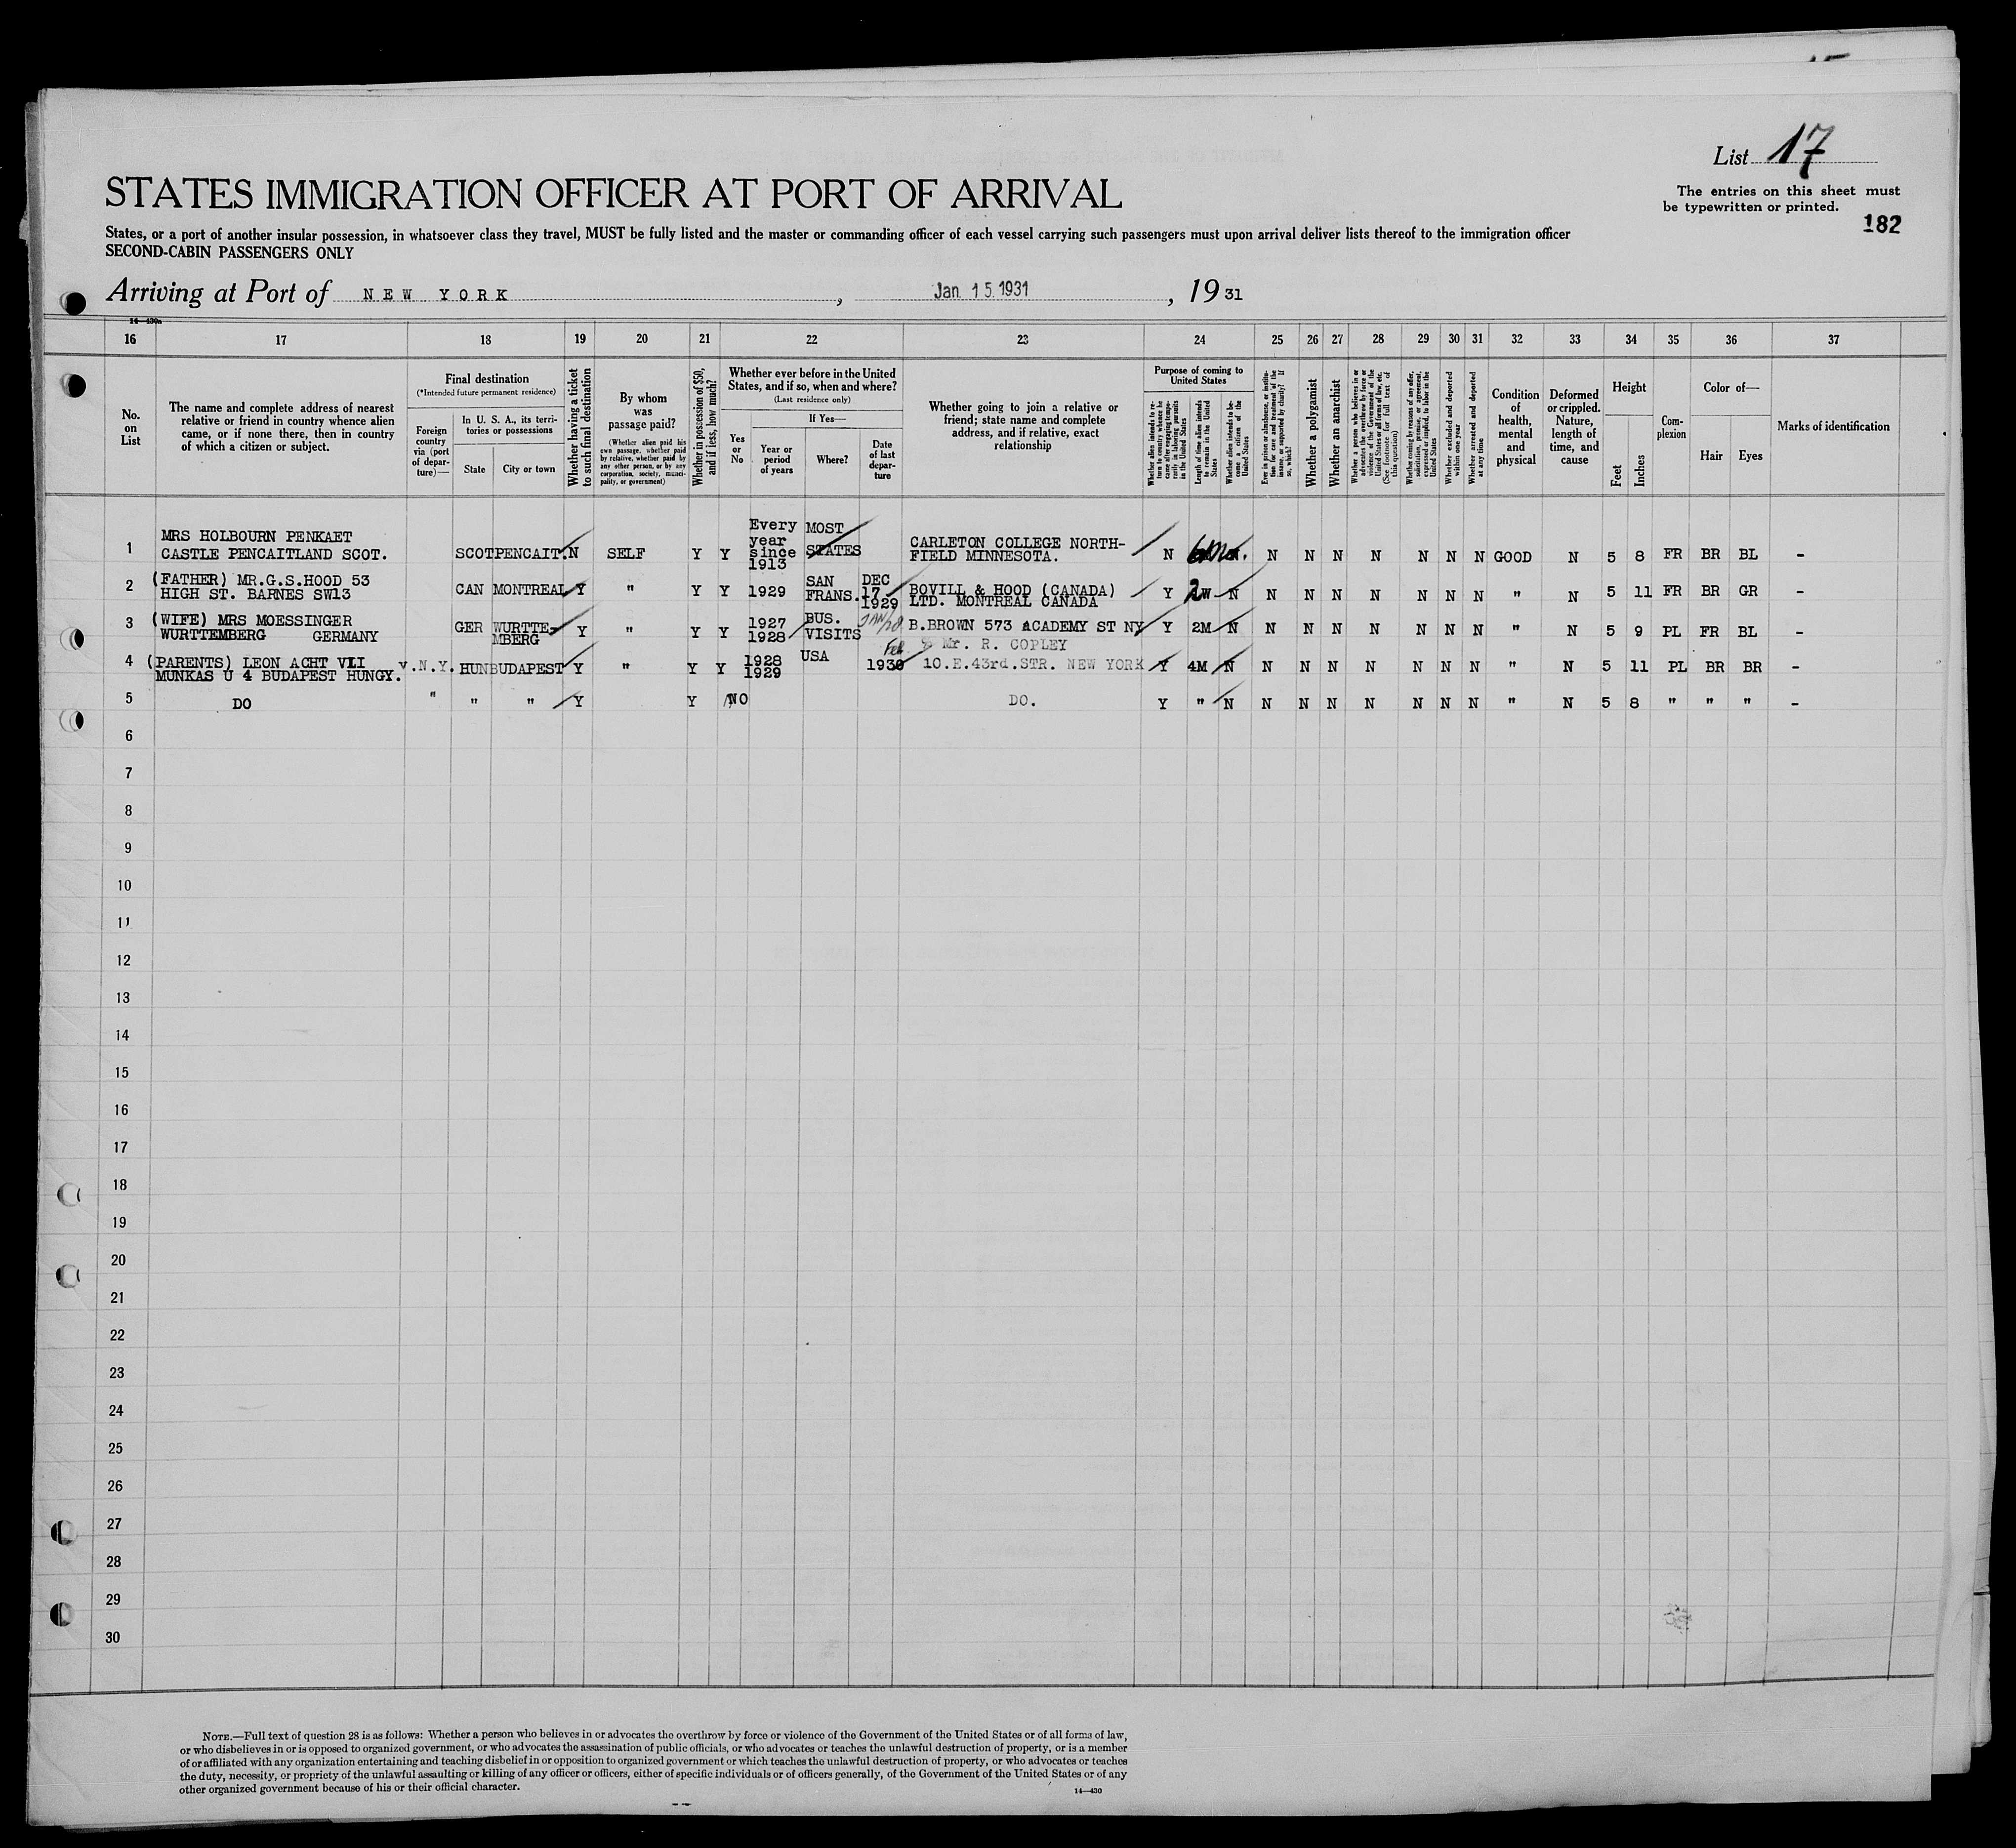 List 17
The entries on this sheet must
be typewritten or printed.
182
STATES IMMIGRATION OFFICER AT PORT OF ARRIVAL
States, or a port of another insular possession, in whatsoever class they travel, MUST be fully listed and the master or commanding officer of each vessel carrying such passengers must upon arrival deliver lists thereof to the immigration officer
SECOND-CABIN PASSENGERS ONLY
Arriving at Port of NEW YORK, Jan. 15.1931, 1931
14—430a
16 17 18 19 20 21 22 23 24 25 26 27 28 29 30 31 32 33 34 35 36 37
No. on List
The name and complete address of nearest
relative or friend in country whence alien
came, or if none there, then in country
of which a citizen or subject.
Final destination
(*Intended future permanent residence)
Foreign country via (port of departure)—
In U. S. A., its territories or possessions
State
City or town
Whether having a ticket to such final destination
By whom was passage paid?
(Whether alien paid his own passage, whether paid by relative, whether paid by any other person, or by any corporation, society, municipality, or government)
Whether in possession of $50, and if less, how much?
Whether ever before in the United States, and if so, when and where?
(Last residence only)
Yes or No
If Yes—
Year or period of years
Where?
Date of last departure
Whether going to join a relative or
friend; state name and complete
address, and if relative, exact
relationship
Purpose of coming to United States
Whether alien intends to return to country whence he came after engaging temporarily in laboring pursuits in the United States
Length of time alien intends to remain in the United States
Whether alien intends to become a citizen of the United States
Ever in prison or almshouse, or institution for care and treatment of the insane, or supported by charity? If so, which?
Whether a polygamist
Whether an anarchist
Whether a person who believes in or advocates the overthrow by force or violence of the Government of the United States or all forms of law, etc. (See footnote for full text of this question)
Whether coming by reasons of any offer, solicitation, promise, or agreement, expressed or implied, to labor in the United States
Whether excluded and deported within one year
Whether arrested and deported at any time
Condition of health, mental and physical
Deformed or crippled. Nature, length of time, and cause
Height
Feet
Inches
Complexion
Color of—
Hair
Eyes
Marks of identification
1 MRS HOLBOURN PENKAET CASTLE PENCAITLAND SCOT. SCOT PENCAIT. N SELF Y Y Every year since 1913 MOST STATES CARLETON COLLEGE NORTH-FIELD MINNESOTA. N N N N N N N N GOOD N 5 8 FR BR BL -
2 (FATHER) MR.G.S.HOOD 53 HIGH ST. BARNES SW13 CAN MONTREAL Y " Y Y 1929 SAN FRANS. DEC 17 1929 BOVILL & HOOD (CANADA) LTD. MONTREAL CANADA Y 2W N N N N N N N N " N 5 11 FR BR GR -
3 (WIFE) MRS MOESSINGER WURTTEMBERG GERMANY GER WURTTE-MBERG Y " Y Y 1927 1928 BUS. VISITS JAN/28 B.BROWN 573 ACADEMY ST NY Y 2M N N N N N N N N " N 5 9 PL FR BL -
4 (PARENTS) LEON ACHT VLI MUNKAS U 4 BUDAPEST HUNGY. v.N.Y. HUN BUDAPEST Y " Y Y 1928 1929 USA Feb 1930 % Mr. R. COPLEY 10.E.43rd.STR. NEW YORK Y 4M N N N N N N N N " N 5 11 PL BR BR -
5 DO " " " Y Y NO DO. Y " N N N N N N N N " N 5 8 " " " -
6
7
8
9
10
11
12
13
14
15
16
17
18
19
20
21
22
23
24
25
26
27
28
29
30
NOTE.—Full text of question 28 is as follows: Whether a person who believes in or advocates the overthrow by force or violence of the Government of the United States or of all forms of law,
or who disbelieves in or is opposed to organized government, or who advocates the assassination of public officials, or who advocates or teaches the unlawful destruction of property, or is a member
of or affiliated with any organization entertaining and teaching disbelief in or opposition to organized government or which teaches the unlawful destruction of property, or who advocates or teaches
the duty, necessity, or propriety of the unlawful assaulting or killing of any officer or officers, either of specific individuals or of officers generally, of the Government of the United States or of any
other organized government because of his or their official character.
14—430